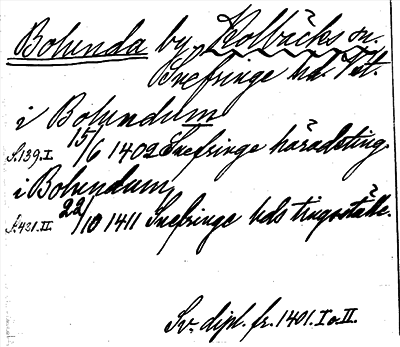 Bohunda by, Kolbäcks sn.
Snefringe hd. Vstl.
i Bohundum
S. 139. I. 15/6 1402 Snefringe häradsting.
i Bohundum,
S. 421. II. 22/10 1411 Snefringe hds tingsställe.
Sv. dipl. fr. 1401. I o. II.